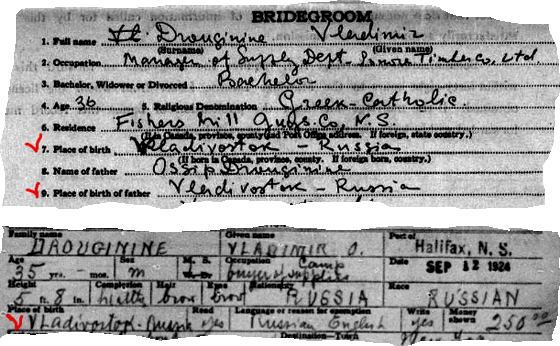 BRIDEGROOM
1. Full name Vl. Drouginine Vladimir
(Surname) (Given name)
2. Occupation Manager of Supply Dept. Timber Co, Ltd
3. Bachelor, Widower or Divorced Bachelor
4. Age 36 5. Religious Denomination Greek-Catholic.
6. Residence Fishers Mill Guys. Co, N.S.
(If in Canada, province, county and Post Office address. If foreign, state country.)
7. Place of birth Vladivostok - Russia
(If born in Canada, province, county. If foreign born, country.)
8. Name of father Ossip Drouginine
9. Place of birth of father Vladivostok - Russia
Family name Given name Port of
DROUGININE VLADIMIR O. Halifax, N. S.
Age Sex M. S. Occupation Camp Date
35 yrs. - mos. m W. D. buyer of supplies SEP 12 1924
Height Complexion Hair Eyes Nationality Race
5 ft. 8 in. healthy brow brow RUSSIA RUSSIAN
Place of birth Read Language or reason for exemption Write Money shown
Vladivostok-Russia yes Russian English yes 250.00
Destination-Town